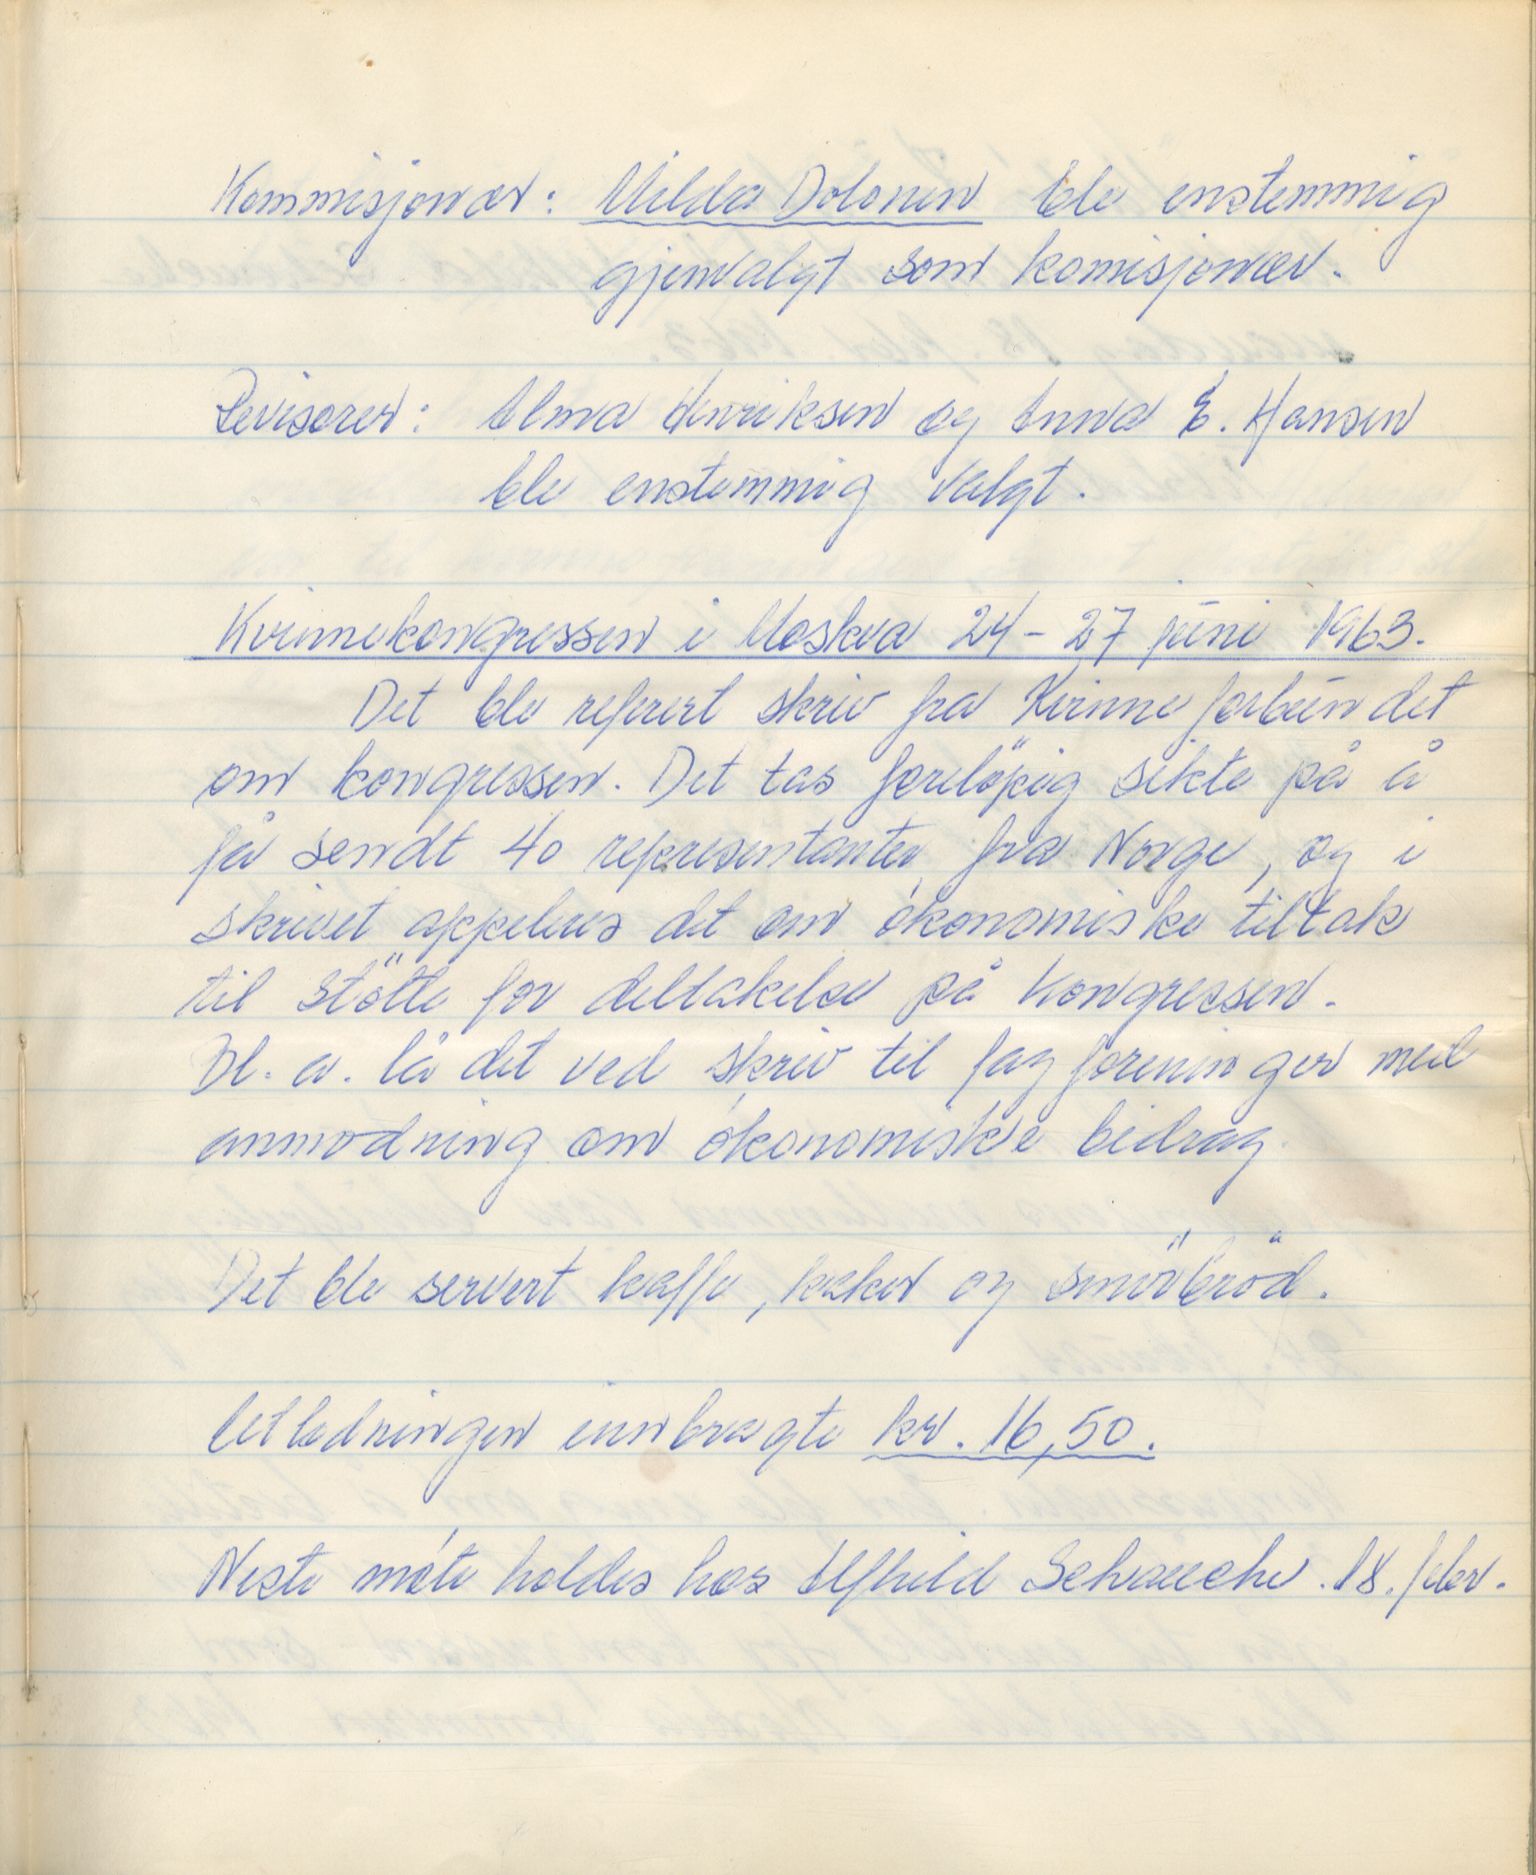 Kommisjonær: Milda Dolonen ble enstemmig
gjenvalgt som komisjonær.
Revisorer: Alma Henriksen og Anna E. Hansen
ble enstemmig valgt.
Kvinnekongressen i Moskva 24-27 juni 1963.
Det ble referert skriv fra Kvinneforbundet
om kongressen. Det tas foreløpig sikte på å
få sendt 40 representanter fra Norge, og i
skrivet appeleres det om økonomiske tiltak
til støtte for deltakelse på Kongressen.
Bl. a. lå det ved skriv til fagforeninger med
anmodning om økonomiske bidrag.
Det ble servert kaffe, kaker og smörbröd.
Utlodningen innbragte kr. 16,50.
Neste møte holdes hos Alfhild Schanche. 18. febr.